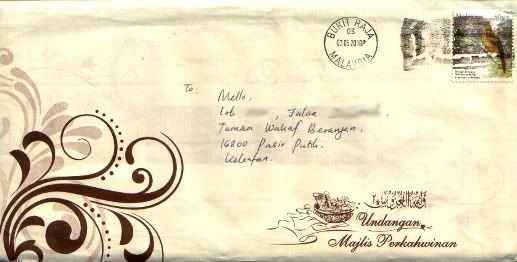 BUKIT RAJA
03
03.05.2010P
MALAYSIA
Malaysia
To:
Mello,
Lot Jalan
Taman Wakaf Berangan,
16800 Pasir Puteh,
Kelantan.
Undangan
Majlis Perkahwinan